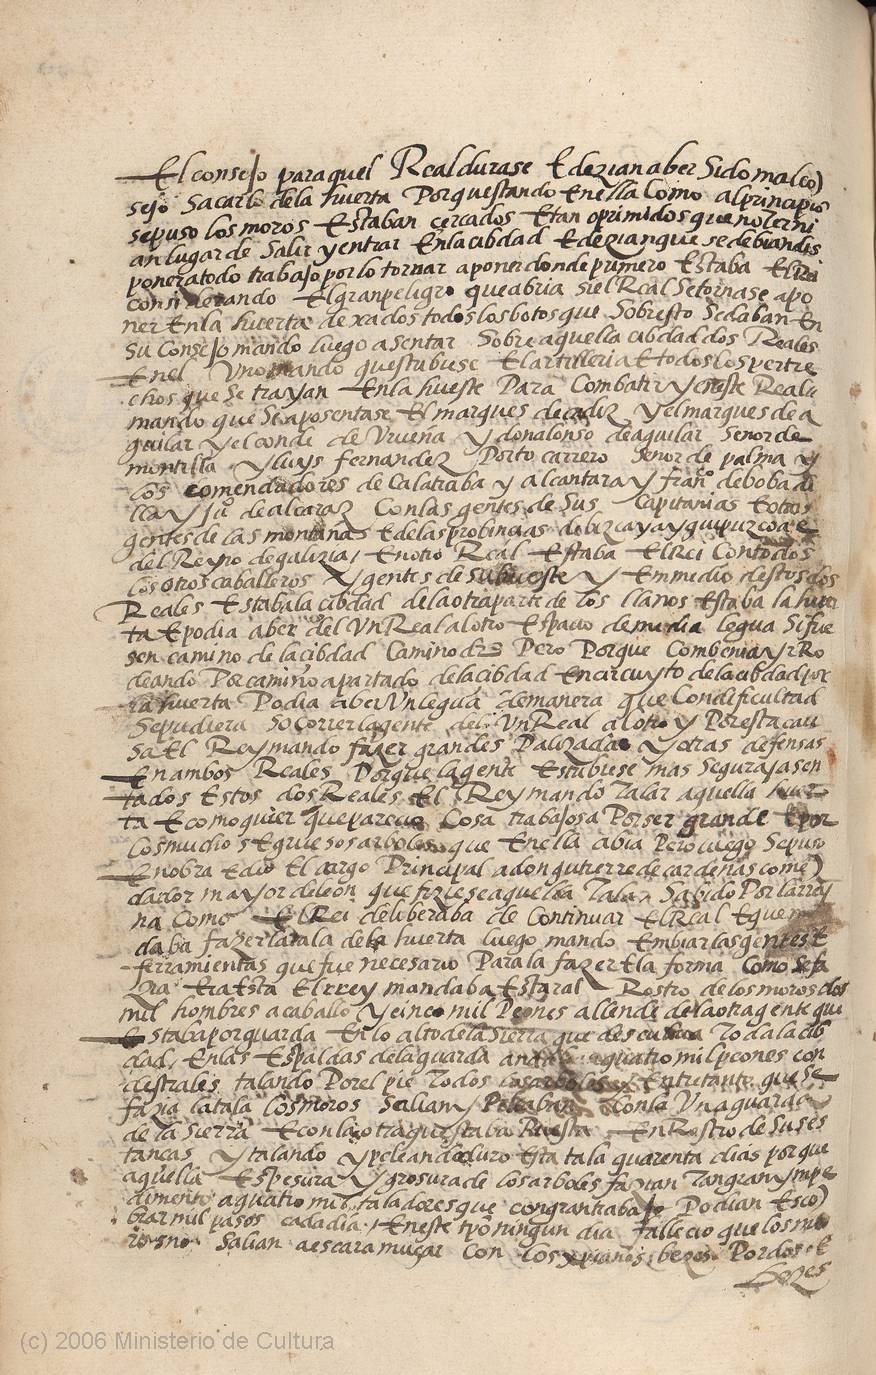 El consejo para quel Real durase E dezian aber Sido mal co)
sejo Sacarlo dela huerta Porquestando Enella Como alprincipio
sepuso los moros Estaban cercados Etan oprimidos que noterni
an lugar de Salir y entrar Enla cibdad E dezian que se debian dis
poner atodo trabajo por lo tornar aponer donde primero Estaba El Rei
considerando El gran peligro que abria si el Real Setornase apo
ner Enla huerta dexados todos los botos que Sobresto Sedaban En
Su Consejo mando luego asentar Sobre aquella cibdad dos Reales
Enel Vno mando questubiese El artilleria Etodos los pertre
chos que Se trayan Enla hueste Para Combatir y eneste Real
mando que Se aposentase El marques de cadiz y el marques de a
guilar y el conde de Vrueña y don alonso de aguilar Señor de
montilla y luys fernandez Porto carrero Señor de palma y
los comendadores de Calatraba y alcantara y fran.º de boba di
lla y Ju.º de alcaraz Con las gentes de Sus Capitanias E otras
gentes de las montañas E delas probincias de bizcaya y guipuzcoa e
del Reyno de galizia / Enotro Real Estaba El Rei Con todos
los otros caballeros y gentes de Su hueste y Em medio destos dos
Reales Estaba la cibdad dela otra parte de los llanos Estaba la huer
ta E podia aber del Vn Real al otro Espacio de media legua Si fue
sen camino de la cibdad Camino Pero Porque Combenia yr Ro
deando Por camino apartado dela cibdad En circuyto dela cibdad por
la huerta Podia aber Vn legua demanera que Con dificultad
Sepudiera Socorrer la gente del Vn Real alotro y Por esta cau
Sa El Rey mando fazer grandes Palizadas y otras defensas
En ambos Reales Porque la gente Estubiese mas Segura asen
tados Estos dos Reales El Rey mando Talar aquella huer
ta E como quier que parecio Cosa trabajosa Por ser grande E por
los muchos E gruesos arboles que Enella abia Pero luego Sepuso
Enobra E dio El cargo Principal a don gutierre de cardenas come)
dador mayor de leon que fiziese aquella Tala Sabido Por la rrey
na Como El Rei deliberaba de Continuar El Real E que
daba fazer la tala dela huerta luego mando Embiar las gentes E
ferramientas que fue necesario Para la fazer E la forma Como Sefa
zia Era Esta El rrey mandaba Estar al Rostro de los moros dos
mil hombres a caballo y cinco mil Peones allende dela otra gente que
Estaba por guarda En lo alto de la Sierra que descubria Toda la cib
dad / En las Espaldas dela guarda quatro mil peones con
destrales talando Por el pie Todos los arboles Entretanto que Se
fazia la tala los moros Salian y Peleaban con la Vna guarda
de la Sierra E con la otra questaba Puesta En Rostro de Sus es
tancas y talando y peleando duro Esta tala quarenta dias porque
aquella Espesura y grosura de los arboles fazian Tan gran ympe
dimento aquatro mil taladores que con gran trabajo Podian Esco)
brar mil pasos cada dia / Eneste tpō ningun dia fallecio que los mo
ros no Salian a escaramuçar Con los xpianos bezes Por dos E
bezes